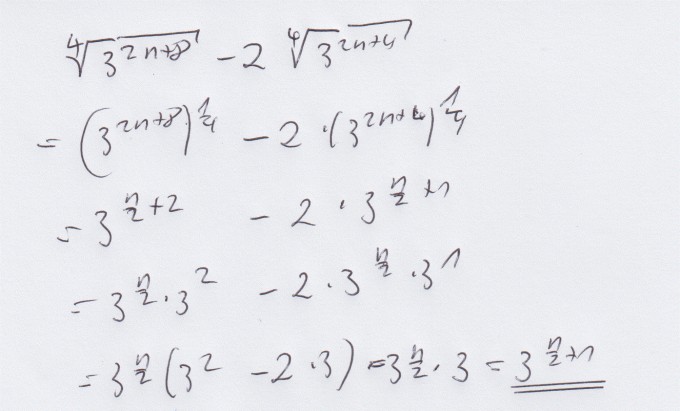 ∜(3^(2n+8)) - 2 ∜(3^(2n+4))
= (3^(2n+8))^(1/4) - 2 · (3^(2n+4))^(1/4)
= 3^(n/2+2) - 2 · 3^(n/2+1)
= 3^(n/2) · 3^2 - 2 · 3^(n/2) · 3^1
= 3^(n/2) (3^2 - 2 · 3) = 3^(n/2) · 3 = 3^(n/2+1)